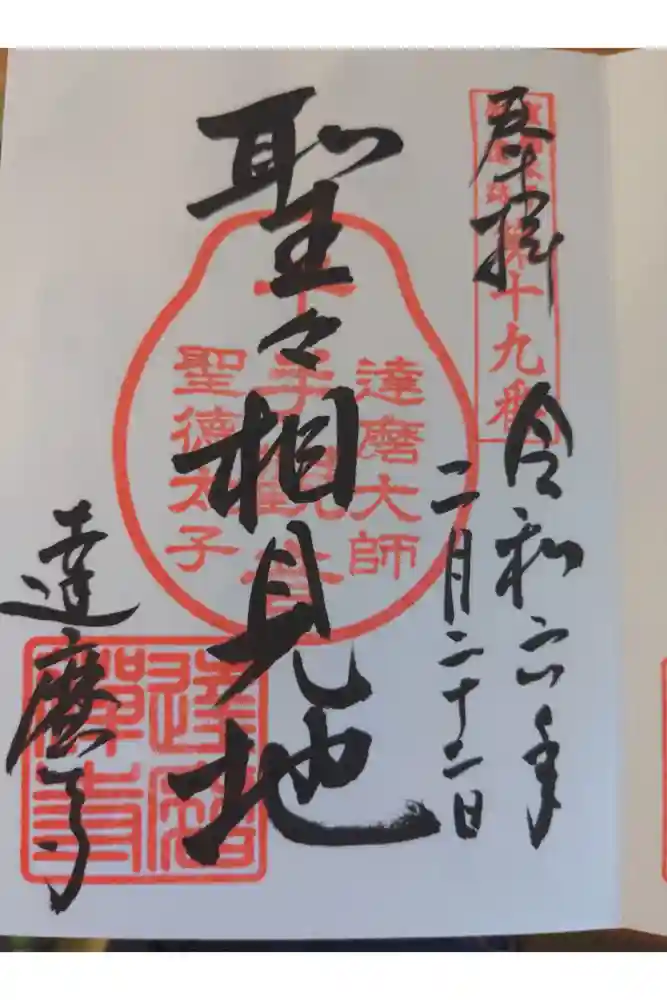 奉拝
第十九番
令和六年
二月二十二日
聖々相見地
達磨大師
千手観音
聖徳太子
達磨寺
達磨禅寺